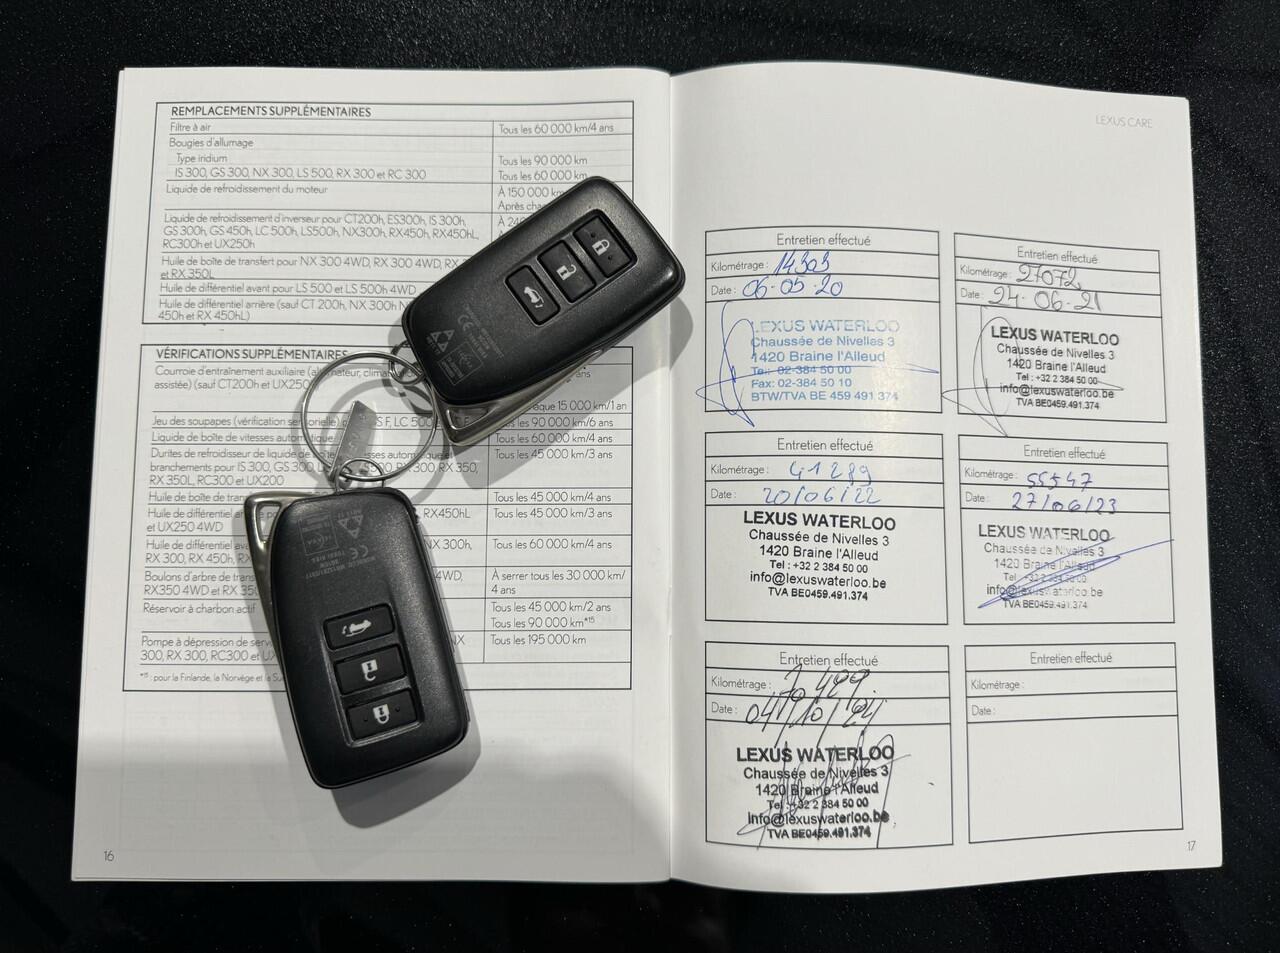 REMPLACEMENTS SUPPLÉMENTAIRES
Filtre à air
Tous les 60 000 km/4 ans
Bougies d'allumage
Type iridium
Tous les 90 000 km
IS 300, GS 300, NX 300, LS 500, RX 300 et RC 300
Tous les 60 000 km
Liquide de refroidissement du moteur
À 150 000 km
Après
Liquide de refroidissement d'inverseur pour CT200h, ES300h, IS 300h,
GS 300h, GS 450h, LC 500h, LS500h, NX300h, RX450h, RX450hL,
RC300h et UX250h
Huile de boîte de transfert pour NX 300 4WD, RX 300 4WD,
et RX 350L
Huile de différentiel avant pour LS 500 et LS 500h 4WD
Huile de différentiel arrière (sauf CT 200h, NX 300h
450h et RX 450hL)
VÉRIFICATIONS SUPPLÉMENTAIRES
Courroie d'entraînement auxiliaire
assistée) (sauf CT200h et UX250
15 000 km/1 an
Jeu des soupapes (vérification
LC 500
90 000 km/6 ans
Liquide de boîte de vitesses automatique
Tous les 60 000 km/4 ans
Durites de refroidisseur de liquide de
automatique et
Tous les 45 000 km/3 ans
branchements pour IS 300, GS 300,
RX 300, RX 350,
RX 350L, RC300 et UX200
Huile de boîte de
Tous les 45 000 km/4 ans
Huile de différentiel
RX450hL
Tous les 45 000 km/3 ans
et UX250 4WD
Huile de différentiel
NX 300h,
Tous les 60 000 km/4 ans
RX 300, RX 450h,
Boulons d'arbre de
4WD,
À serrer tous les 30 000 km/
RX350 4WD et RX
4 ans
Réservoir à charbon actif
Tous les 45 000 km/2 ans
Tous les 90 000 km*15
Pompe à dépression de
NX
Tous les 195 000 km
300, RX 300, RC300 et
*15 : pour la Finlande, la Norvège et la
16
LEXUS CARE
Entretien effectué
Kilométrage : 14303
Date : 06-05-20
LEXUS WATERLOO
Chaussée de Nivelles 3
1420 Braine l'Alleud
Tel: 02-384 50 00
Fax: 02-384 50 10
BTW/TVA BE 459 491 374
Entretien effectué
Kilométrage : 27072
Date : 24-06-21
LEXUS WATERLOO
Chaussée de Nivelles 3
1420 Braine l'Alleud
Tel : +32 2 384 50 00
info@lexuswaterloo.be
TVA BE0459.491.374
Entretien effectué
Kilométrage : 41289
Date : 20/06/22
LEXUS WATERLOO
Chaussée de Nivelles 3
1420 Braine l'Alleud
Tel : +32 2 384 50 00
info@lexuswaterloo.be
TVA BE0459.491.374
Entretien effectué
Kilométrage : 55547
Date : 27/06/23
LEXUS WATERLOO
Chaussée de Nivelles 3
1420 Braine l'Alleud
Tel : +32 2 384 50 00
info@lexuswaterloo.be
TVA BE0459.491.374
Entretien effectué
Kilométrage : 70 429
Date : 04/10/24
LEXUS WATERLOO
Chaussée de Nivelles 3
1420 Braine l'Alleud
Tel : +32 2 384 50 00
info@lexuswaterloo.be
TVA BE0459.491.374
Entretien effectué
Kilométrage :
Date :
17